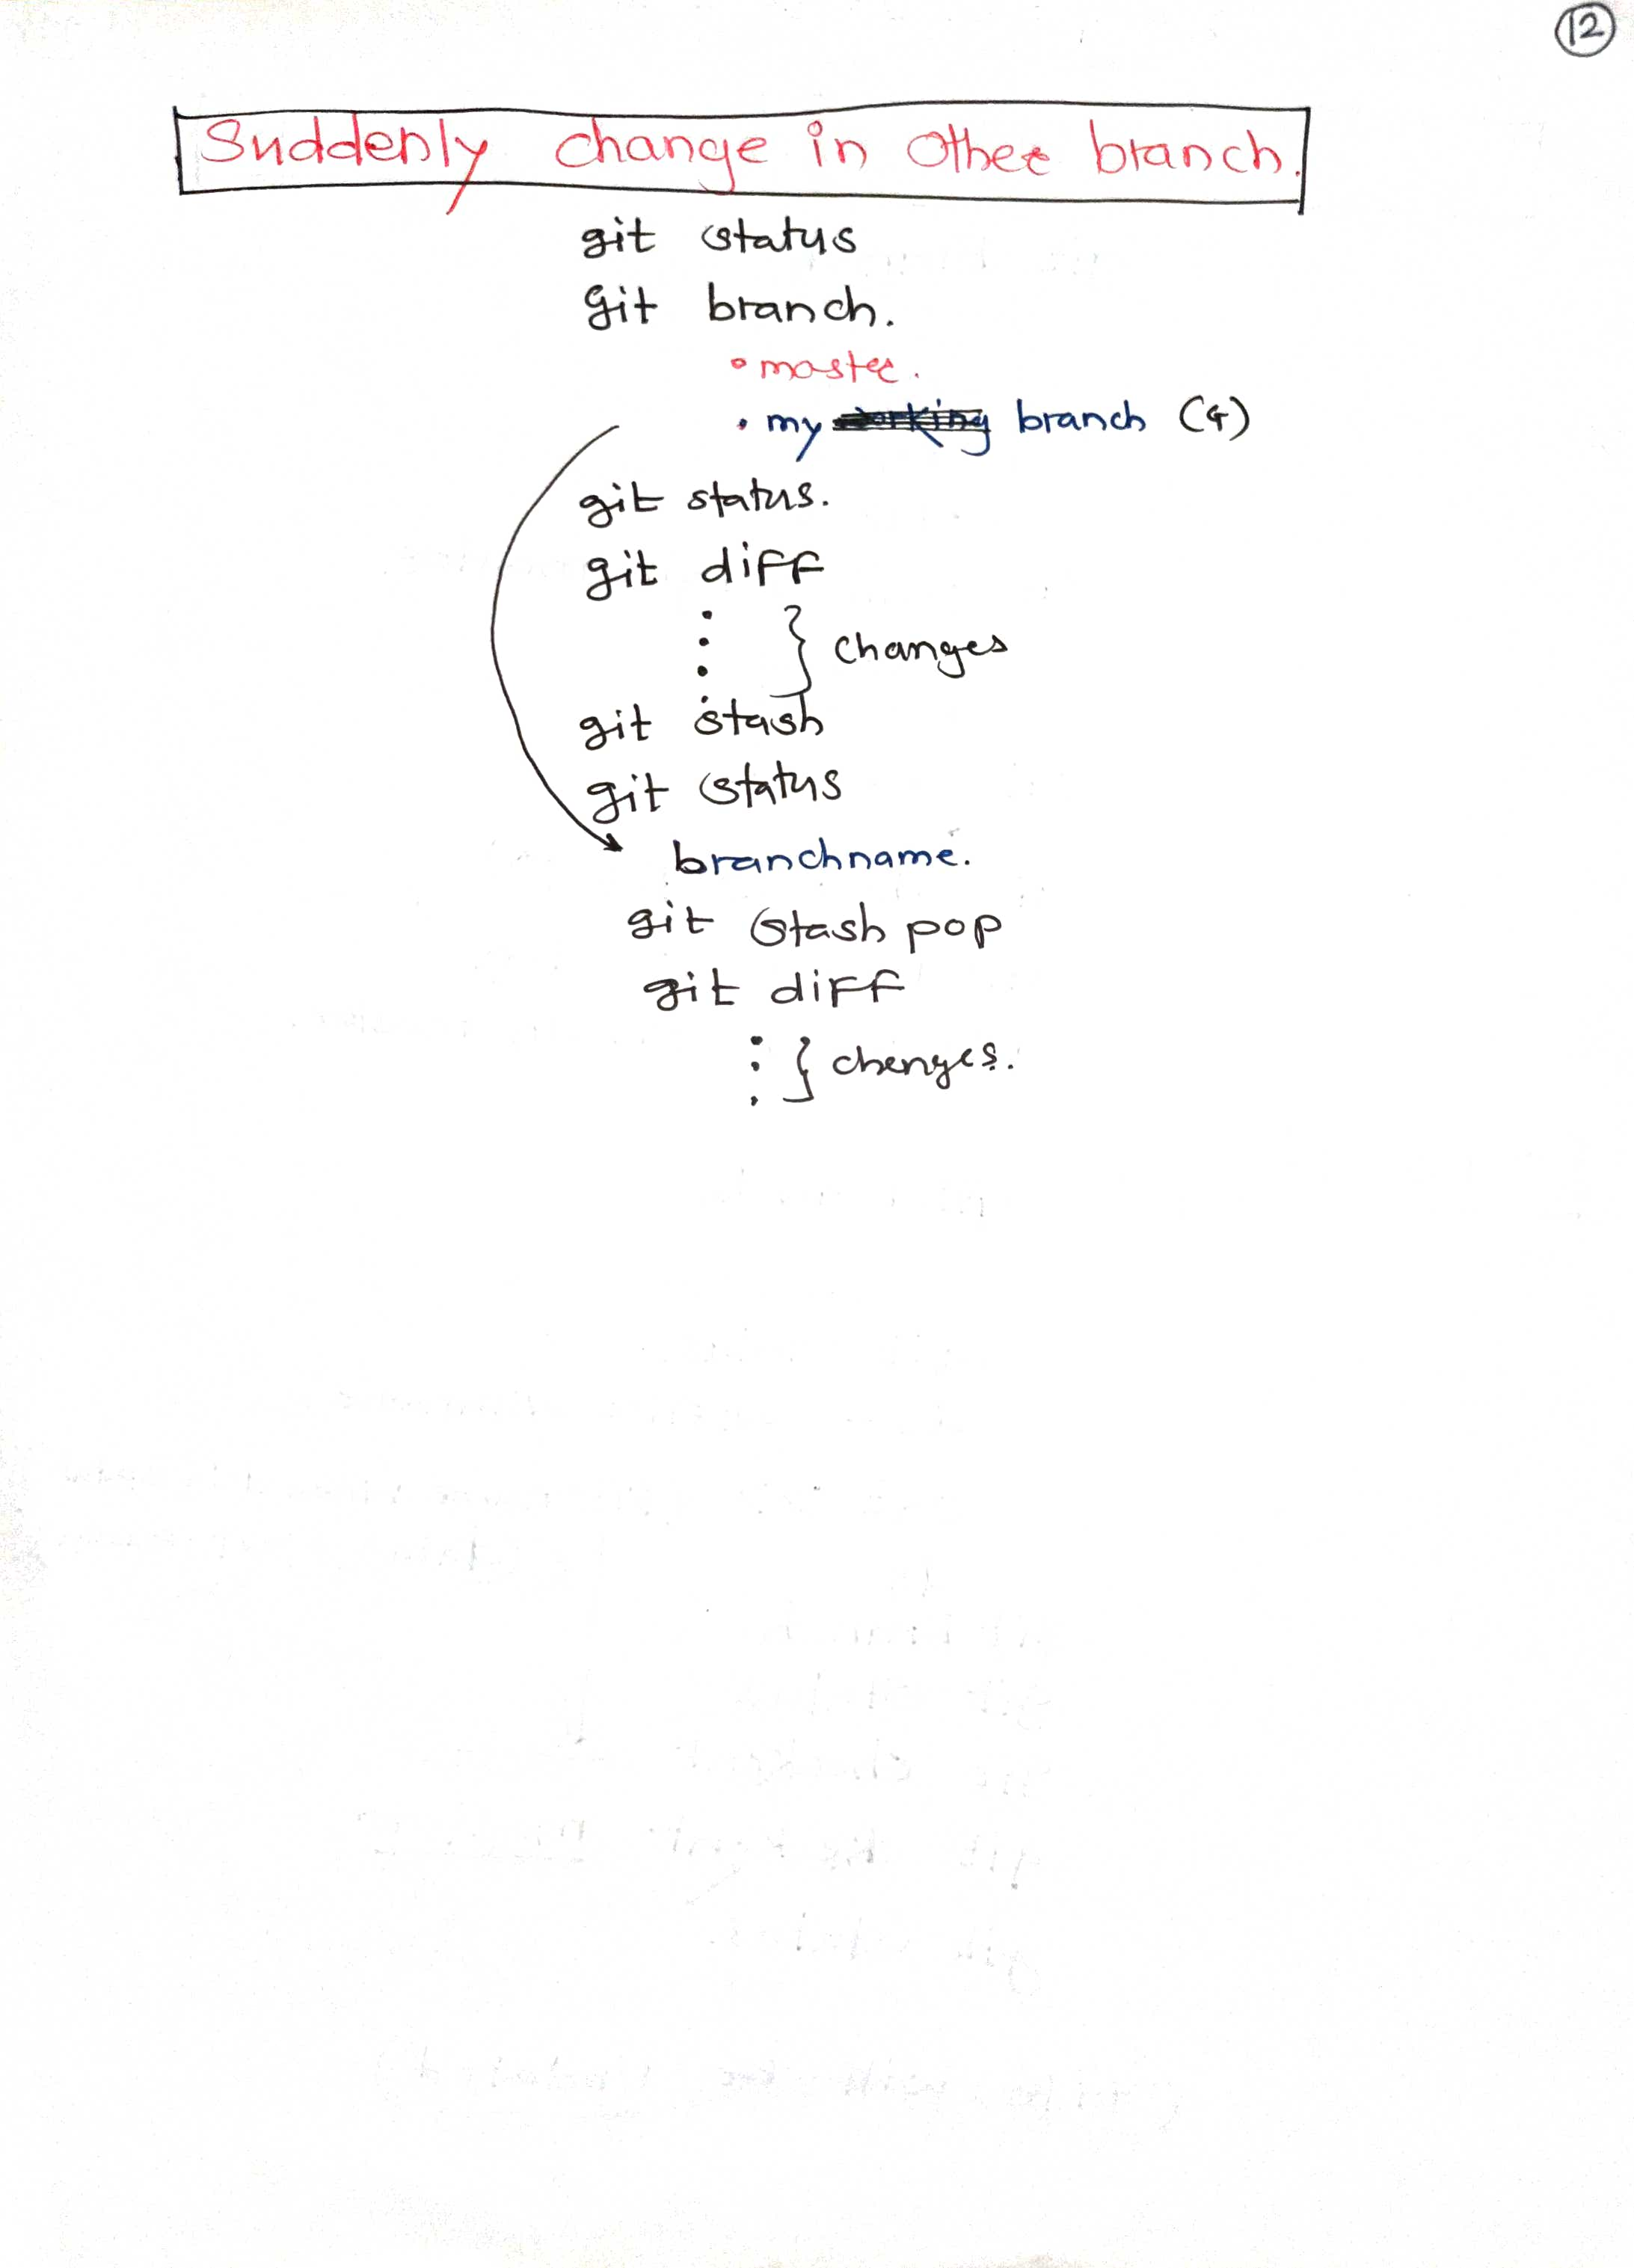 12
Suddenly change in other branch.
git status
git branch.
• master.
• my branch (G)
git status.
git diff
} changes
git stash
git status
branchname.
git stash pop
git diff
} chenges.